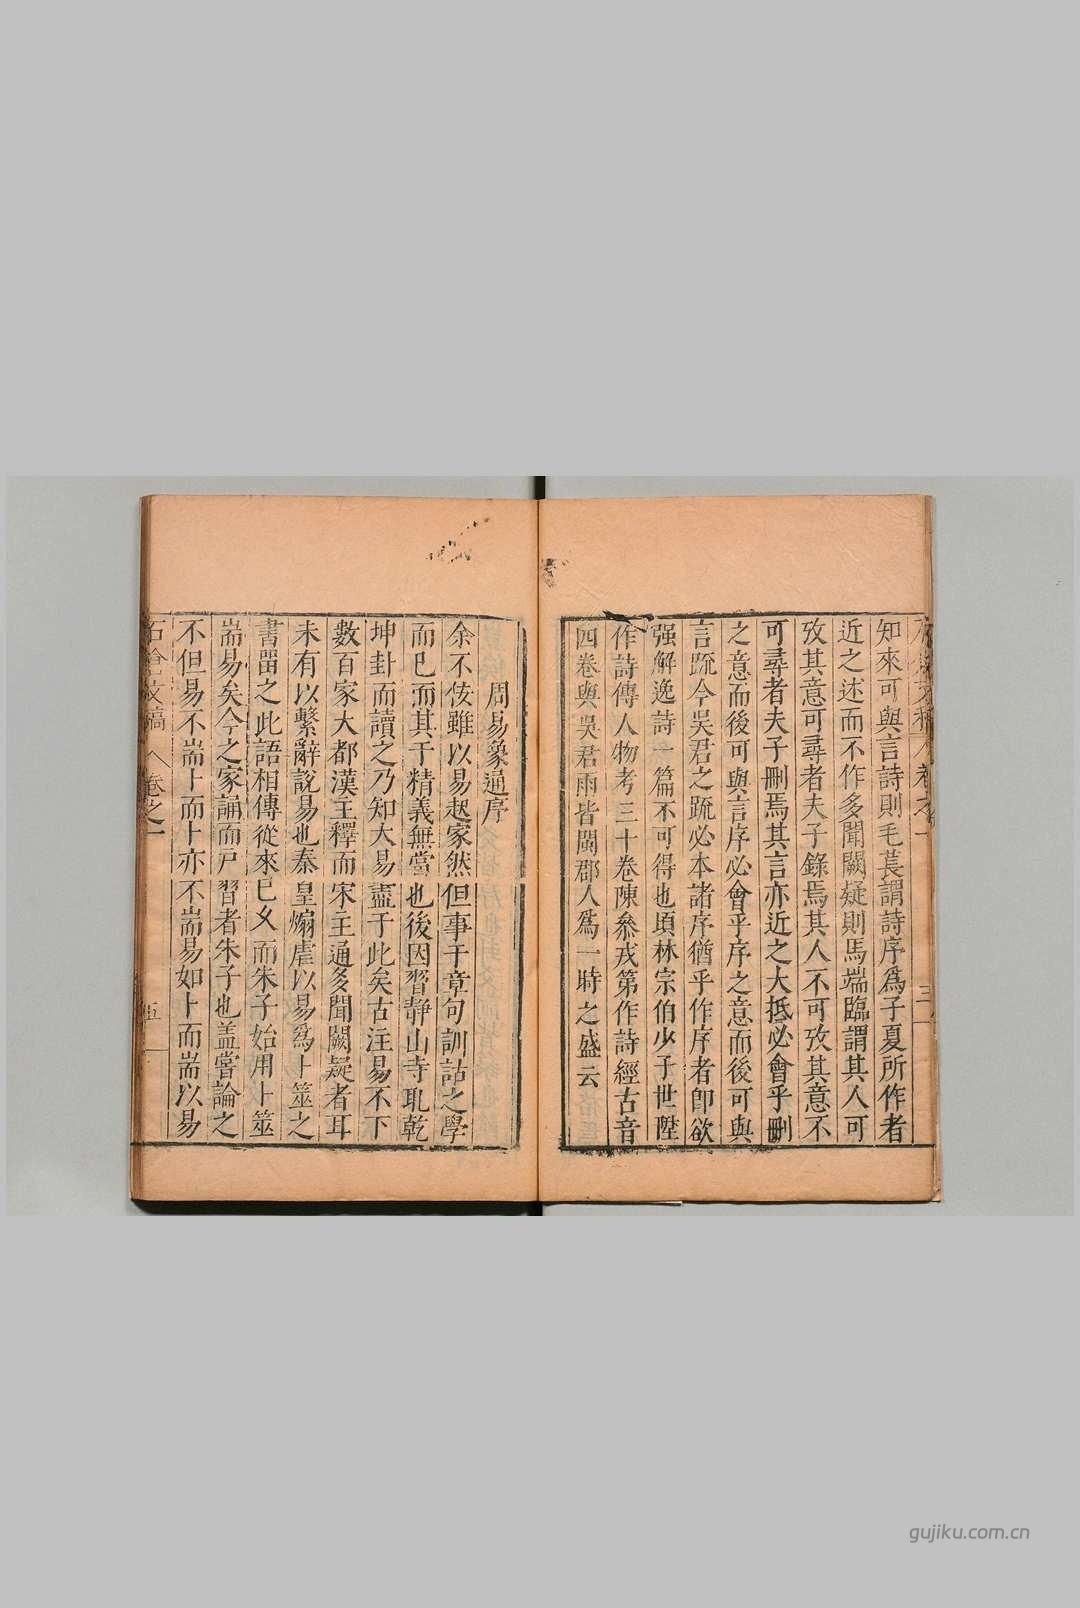 知來可與言詩則毛萇謂詩序爲子夏所作者
近之述而不作多聞闕疑則馬端臨謂其人可
攷其意可尋者夫子錄焉其人不可攷其意不
可尋者夫子刪焉其言亦近之大抵必會乎刪
之意而後可與言序必會乎序之意而後可與
言疏今吳君之疏必本諸序猶乎作序者卽欲
强解逸詩一篇不可得也頃林宗伯少子世陞
作詩傳人物考三十卷陳叅戎第作詩經古音
四卷與吳君雨皆閩郡人爲一時之盛云
周易象通序
余不佞雖以易起家然但事于章句訓詁之學
而已而其于精義無當也後因習靜山寺取乾
坤卦而讀之乃知大易盡于此矣古注易不下
數百家大都漢主釋而宋主通多聞闕疑者耳
未有以繫辭說易也秦皇煽虐以易爲卜筮之
書畱之此語相傳從來已久而朱子始用卜筮
耑易矣今之家誦而戶習者朱子也盖嘗論之
不但易不耑卜而卜亦不耑易如卜而耑以易
石倉文稿 卷之一
五